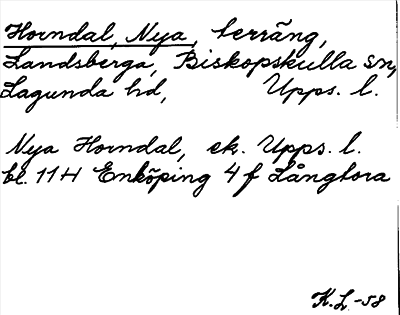 Horndal, Nya, terräng,
Landsberga, Biskopskulla sn,
Lagunda hd, Upps. l.
Nya Horndal, ek. Upps. l.
bl. 11H Enköping 4 f Långtora
K.L.-58